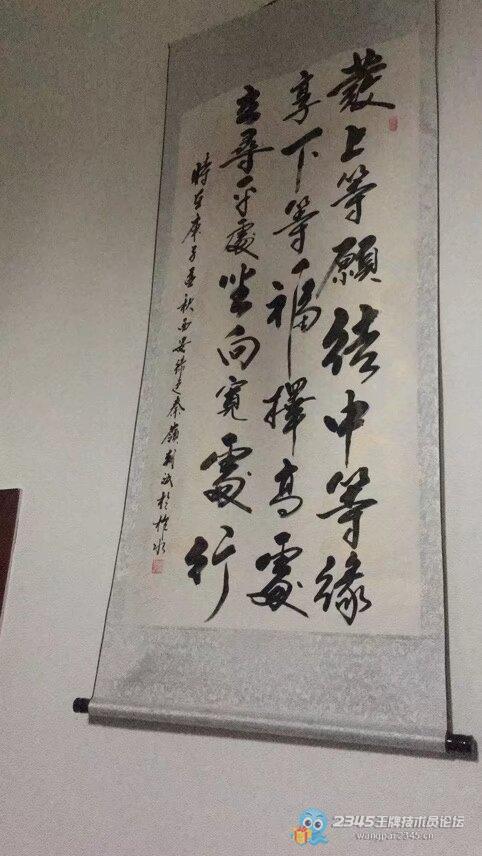 發上等願結中等緣
享下等福擇高處
立尋平處坐向寬處行
時在庚子孟秋西安秦嶺於柞水
2345王牌技术员论坛
wangpai.2345.cn